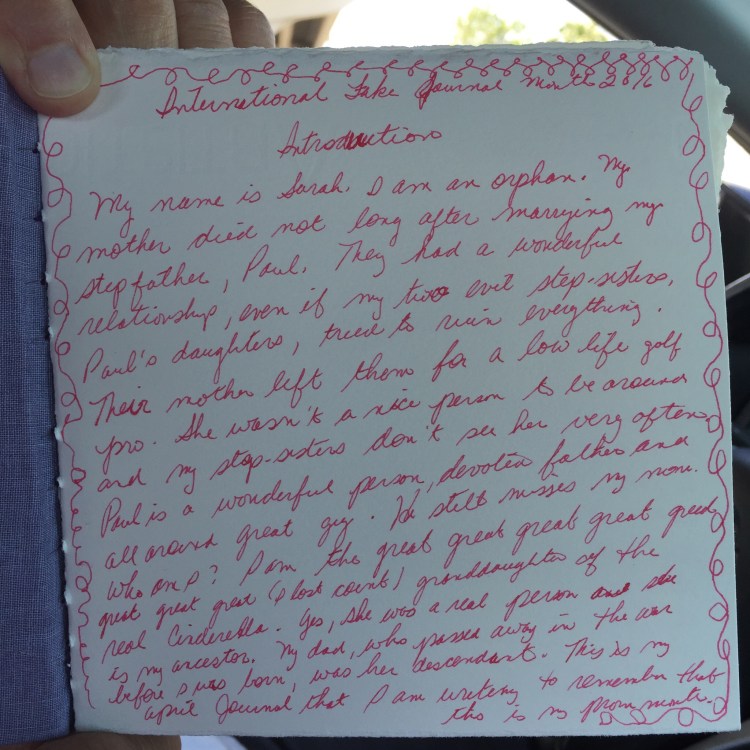 International Fake Journal Month 2016
Introduction
My name is Sarah. I am an orphan. My
mother died not long after marrying my
stepfather, Paul. They had a wonderful
relationship, even if my two evil step-sisters,
Paul's daughters, tried to ruin everything.
Their mother left them for a low life golf
pro. She wasn't a nice person to be around
and my step-sisters don't see her very often.
Paul is a wonderful person, devoted father and
all around great guy. He still misses my mom.
Who am I? I am the great great great great
great great great (I lost count) granddaughter of the
real Cinderella. Yes, she was a real person and she
is my ancestor. My dad, who passed away in the war
before I was born, was her descendant. This is my
April Journal that I am writing to remember that
this is my prom month.